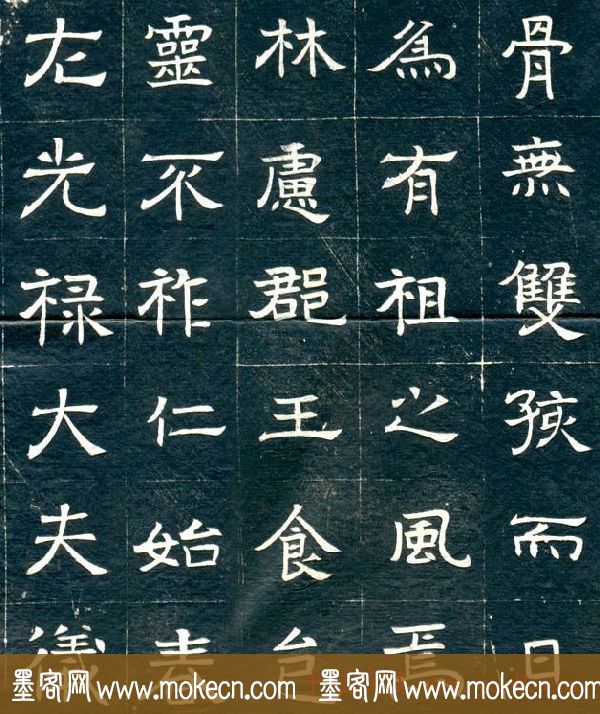 骨無雙孩而日
為有祖之風焉
林慮郡王食邑
靈不祚仁始
左光禄大夫儀
墨客网 www.mokecn.com 墨客网 www.mokecn.com